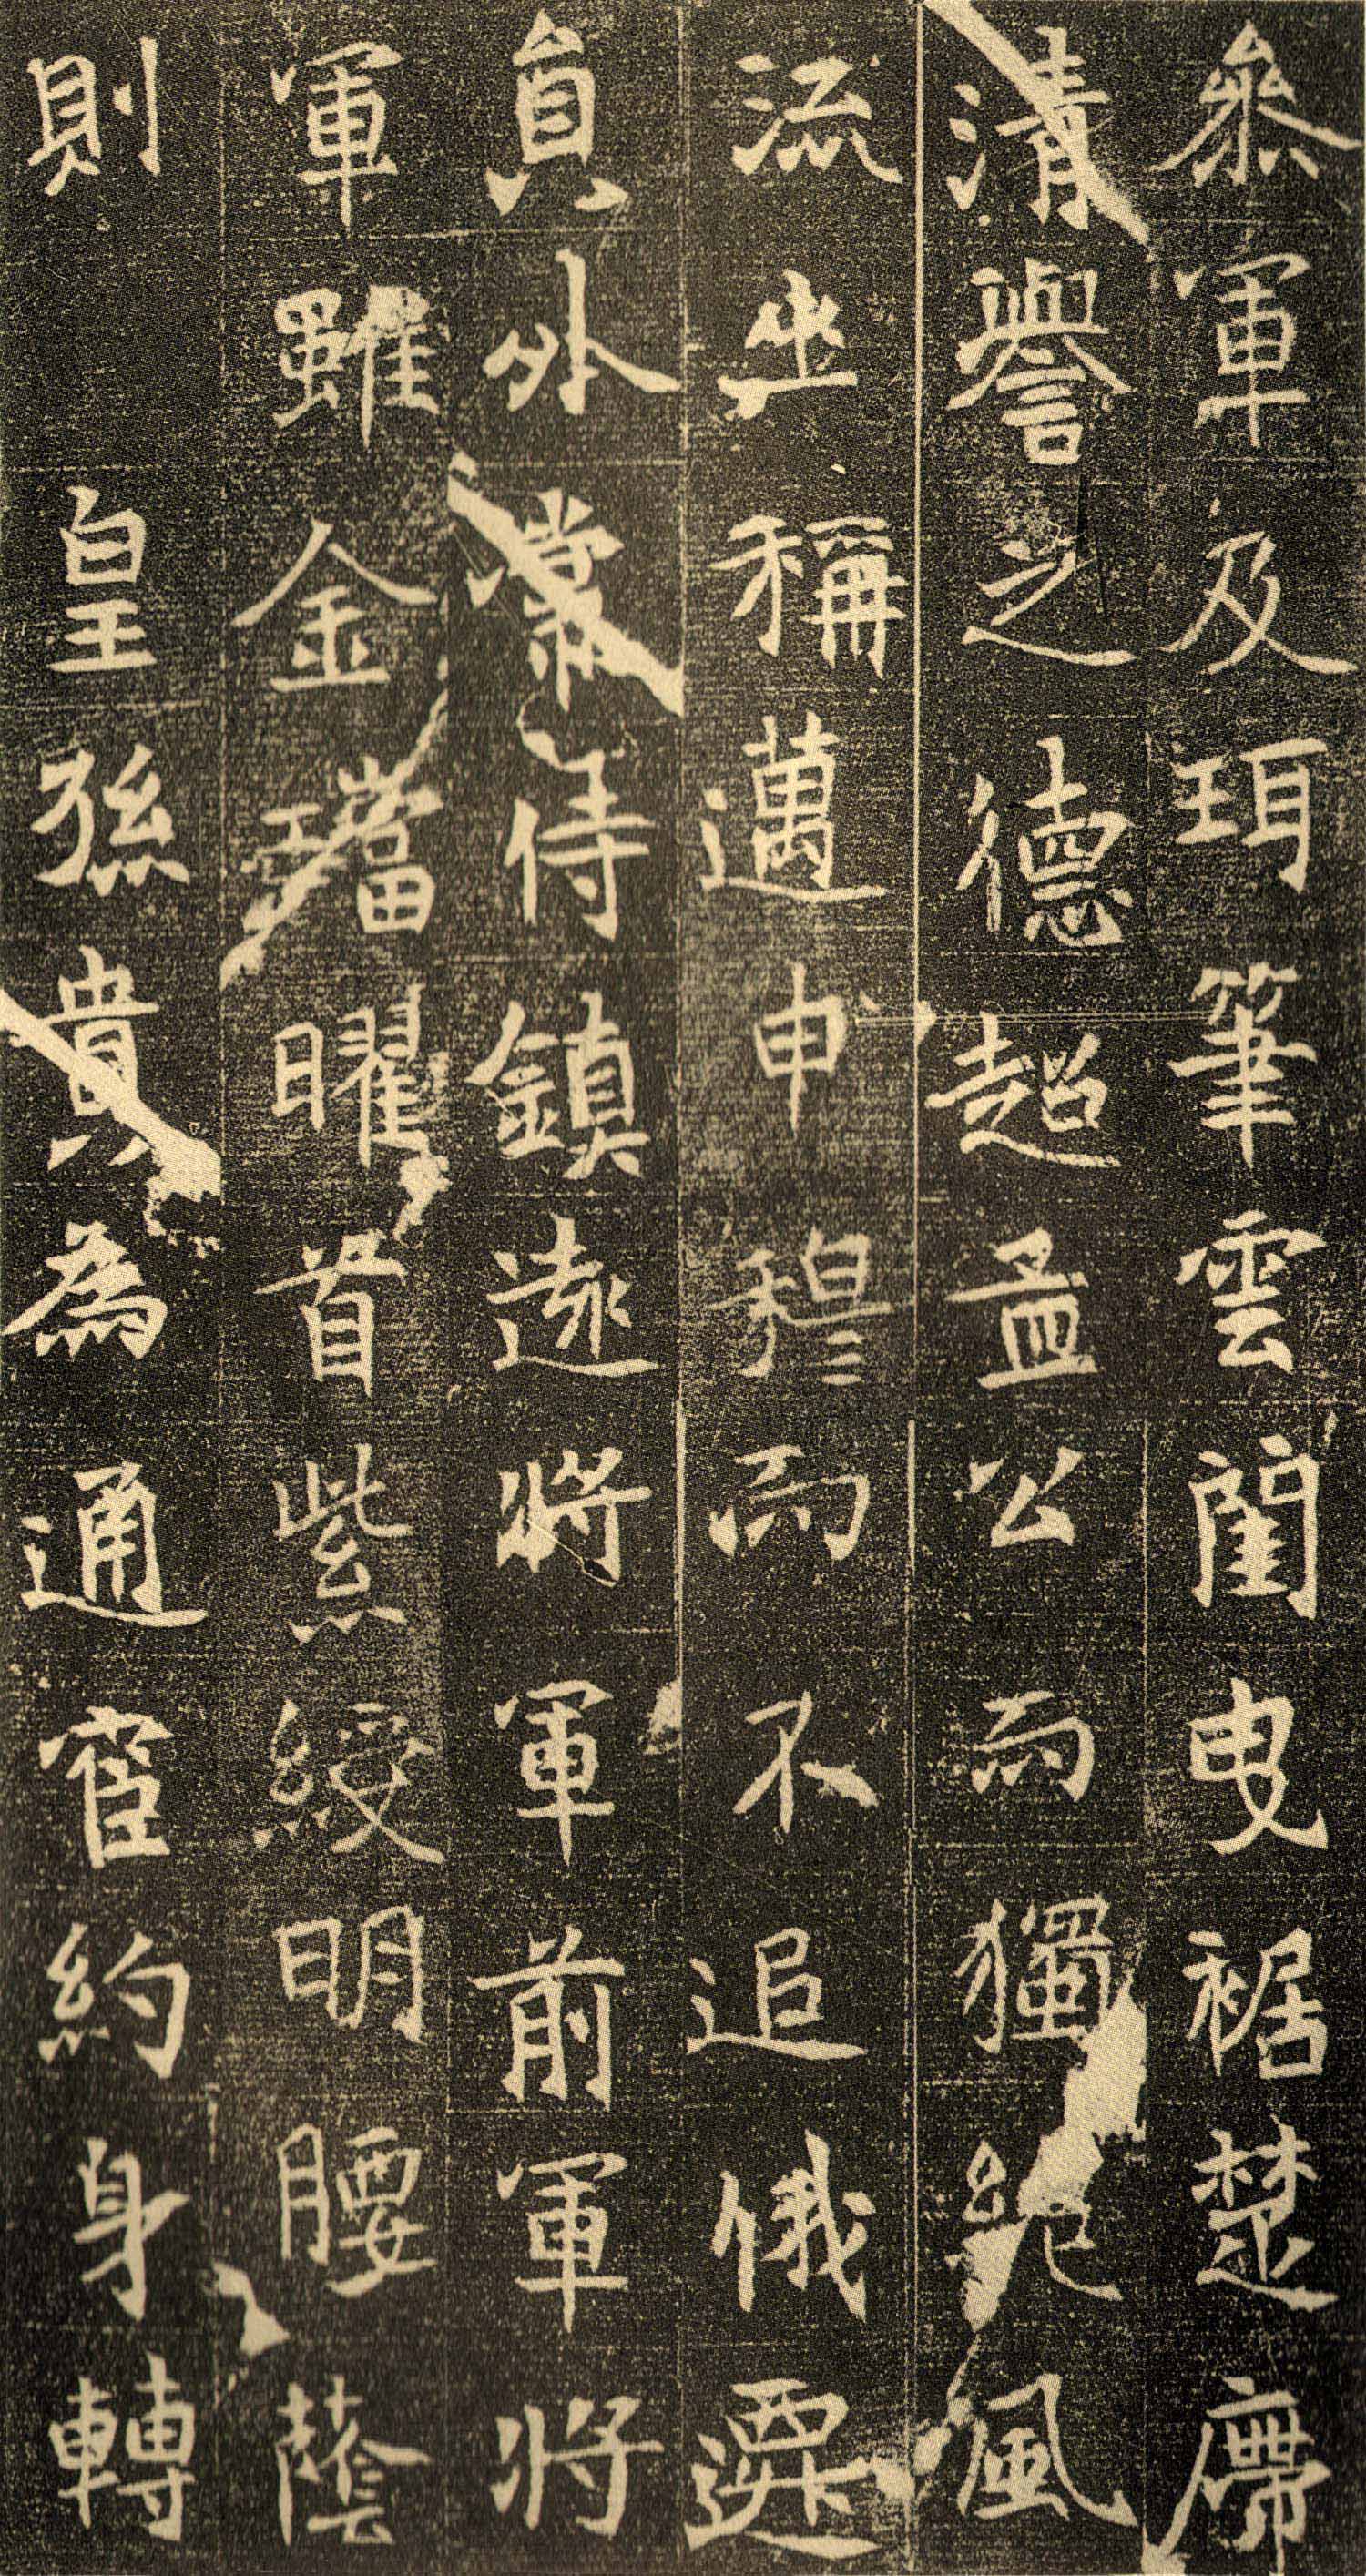 參軍及珥筆雲閨曳裾楚席
清譽之德超孟公而獨絕風
流坐稱邁申穆而不追俄遷
員外常侍鎮遠將軍前軍將
軍雖金璫曜首紫綬明腰蔭
則 皇孫貴為通官約身轉